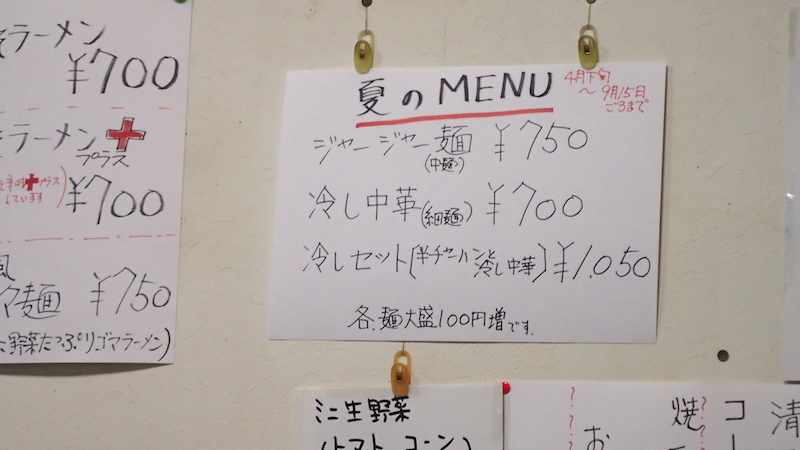 ラーメン
¥700
ラーメン+
プラス
¥700
しています
麺 ¥750
野菜たっぷりゴマラーメン)
夏のMENU
4月下旬
〜9月15日
ごろまで
ジャージャー麺 ¥750
(中麺)
冷し中華(細麺) ¥700
冷しセット(半チャーハンと冷し中華) ¥1,050
各麺大盛100円増です.
ミニ生野菜
(トマト コーン)
お
焼
コー
清